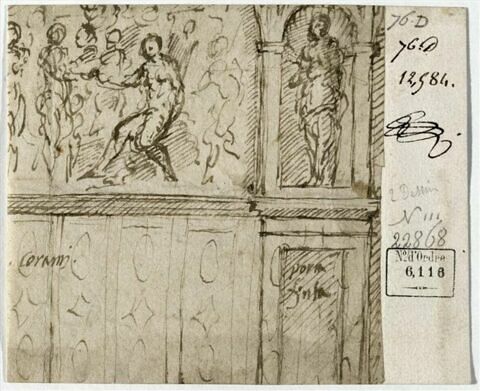 76-D
76 D
12584.
2 Dessin
N III
22868
N.º d'Ordre
6,118
corami
porta
finta